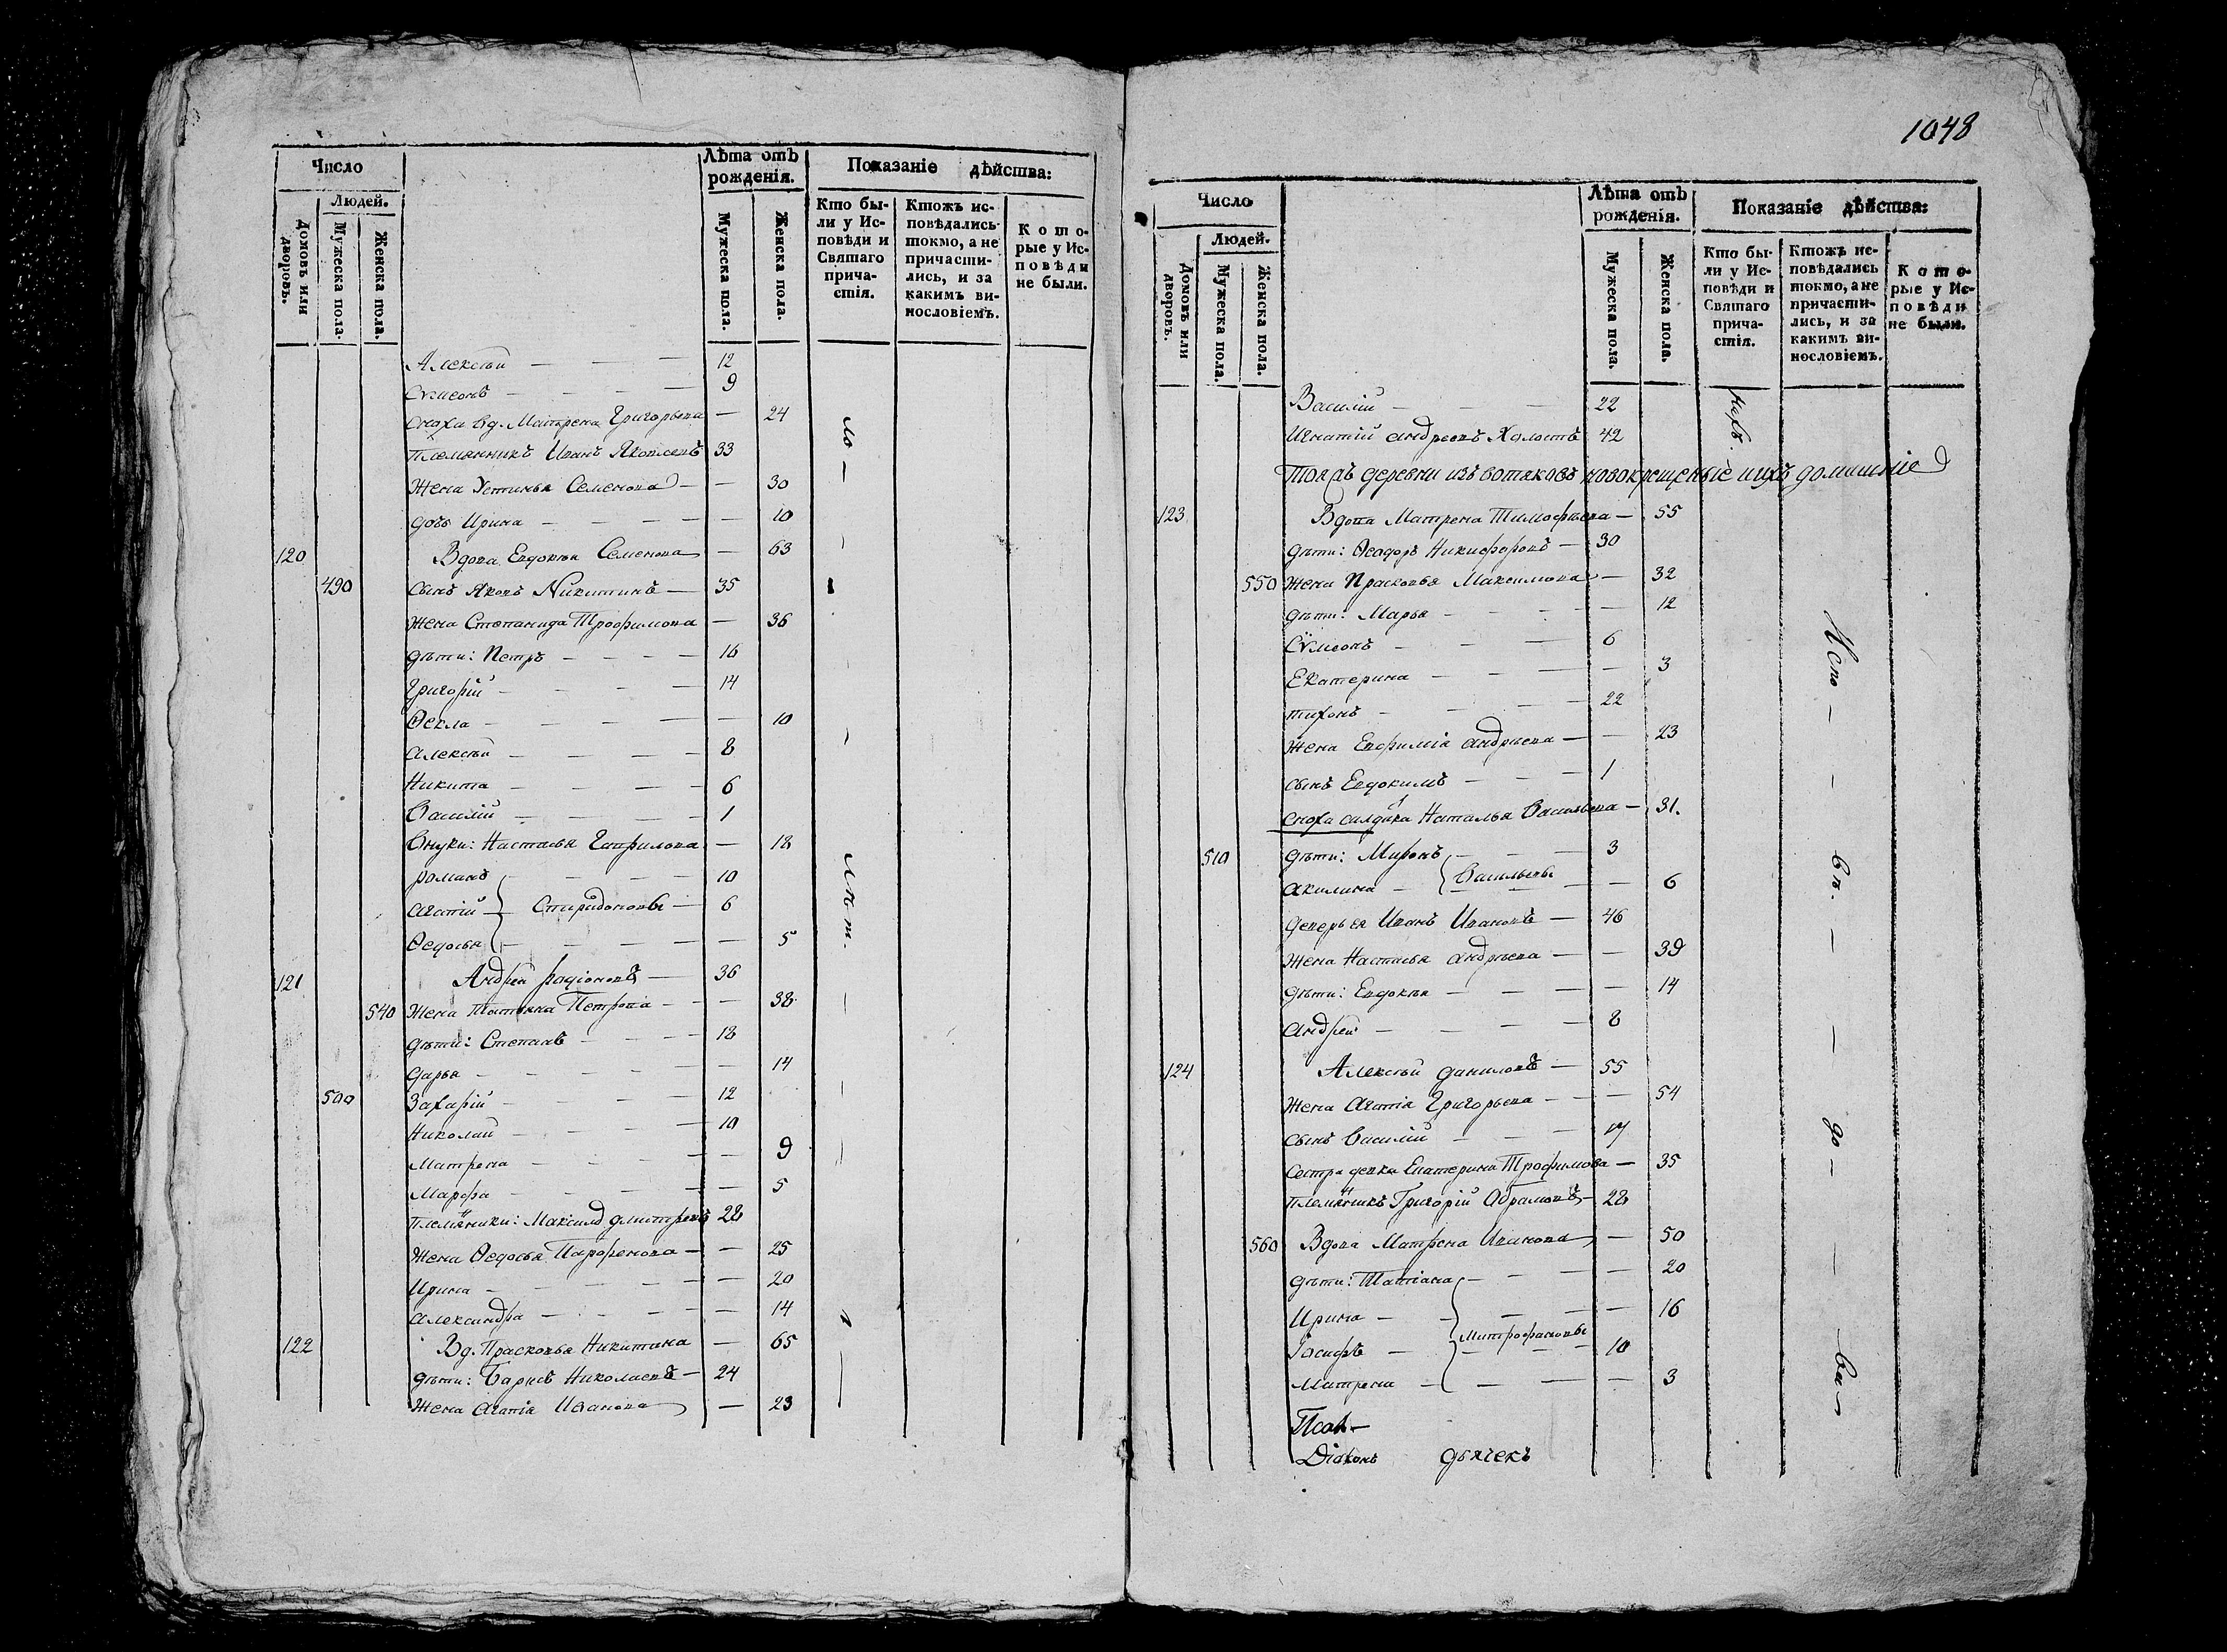 Число
Людей.
Домовъ или дворовъ.
Мужеска пола.
Женска пола.
Лѣта отъ рожденія.
Мужеска пола.
Женска пола.
Показаніе дѣйства:
Кто бы-
ли у Ис-
повѣди и
Святаго
прича-
стія.
Ктожъ ис-
повѣдались
токмо, а не
причасти-
лись, и за
какимъ ви-
нословіемъ.
Кото-
рые у Ис-
повѣди
не были.
Алексѣй — — — 12
Сѵмеонъ — — — 9
Сноха вд. Матрена Григорьева — 24
Племянникъ Иванъ Яковлевъ 33
Жена Устинья Семенова — — 30
дочь Ирина — — — — — 10
120 Вдова Евдокѣя Семенова — 63
490 Сынъ Яковъ Никитинъ — 35
Жена Степанида Трофимова — 36
дѣти: Петръ — — — — 16
Григорій — — — 14
Ѳекла — — — — — 10
Алексѣй — — — — 8
Никита — — — — 6
Василій — — — — 1
Внуки: Настасья Гаврилова — 18
Романъ — — — — 10
Агапій — Спиридоновы — 6
Ѳедосья — — — — — 5
121 Андрей Радіоновъ — 36
540 Жена Татьяна Петрова — — 38
дѣти: Степанъ — — — 18
Дарья — — — — — 14
500 Захарій — — — — 12
Николай — — — — 10
Матрена — — — — — 9
Марфа — — — — — 5
Племянники: Максимъ Дмитревъ 28
Жена Ѳедосья Парфенова — — 25
Ирина — — — — — 20
Александра — — — — — 14
122 Вд. Прасковья Никитина — 65
дѣти: Борисъ Николаевъ — 24
Жена Агапія Иванова — 23
ло —
лѣт.
1048
Число
Людей.
Домовъ или дворовъ.
Мужеска пола.
Женска пола.
Лѣта отъ рожденія.
Мужеска пола.
Женска пола.
Показаніе дѣйства:
Кто бы-
ли у Ис-
повѣди и
Святаго
прича-
стія.
Ктожъ ис-
повѣдались
токмо, а не
причасти-
лись, и за
какимъ ви-
нословіемъ.
Кото-
рые у Ис-
повѣди
не были.
Василій — — — 22
Игнатій Андреевъ Холостъ 42
Тоя жъ деревни изъ вотяковъ новокрещеные и ихъ домашніе
123 Вдова Матрена Тимофѣева — 55
дѣти: Ѳеодоръ Никифоровъ — 30
550 Жена Прасковья Максимова — 32
дѣти: Марья — — — — 12
Сѵмеонъ — — — 6
Екатерина — — — — 3
Тихонъ — — — — 22
Жена Евфимія Андрѣева — — 23
сынъ Евдокимъ — — — 1
сноха салдатка Наталья Васильева — 31.
510 дѣти: Миронъ — — — 3
Акилина — Васильевы — — 6
деверь ея Иванъ Ивановъ — 46
Жена Настасья Андрѣева — — 39
дѣти: Евдокѣя — — — — 14
Андрей — — — — 8
124 Алексѣй Даниловъ — 55
Жена Агапія Григорьева — — 54
сынъ Василій — — — 17
Сестра девка Екатерина Трофимова — 35
Племянникъ Григорій Абрамовъ — 28
560 Вдова Матрена Иванова — 50
дѣти: Татіана — — — 20
Ирина — — — — 16
Іосифъ — Митрофановы — 10
Матрена — — — — 3
Діаконъ дьячекъ
Испо — вѣ. — до — вал